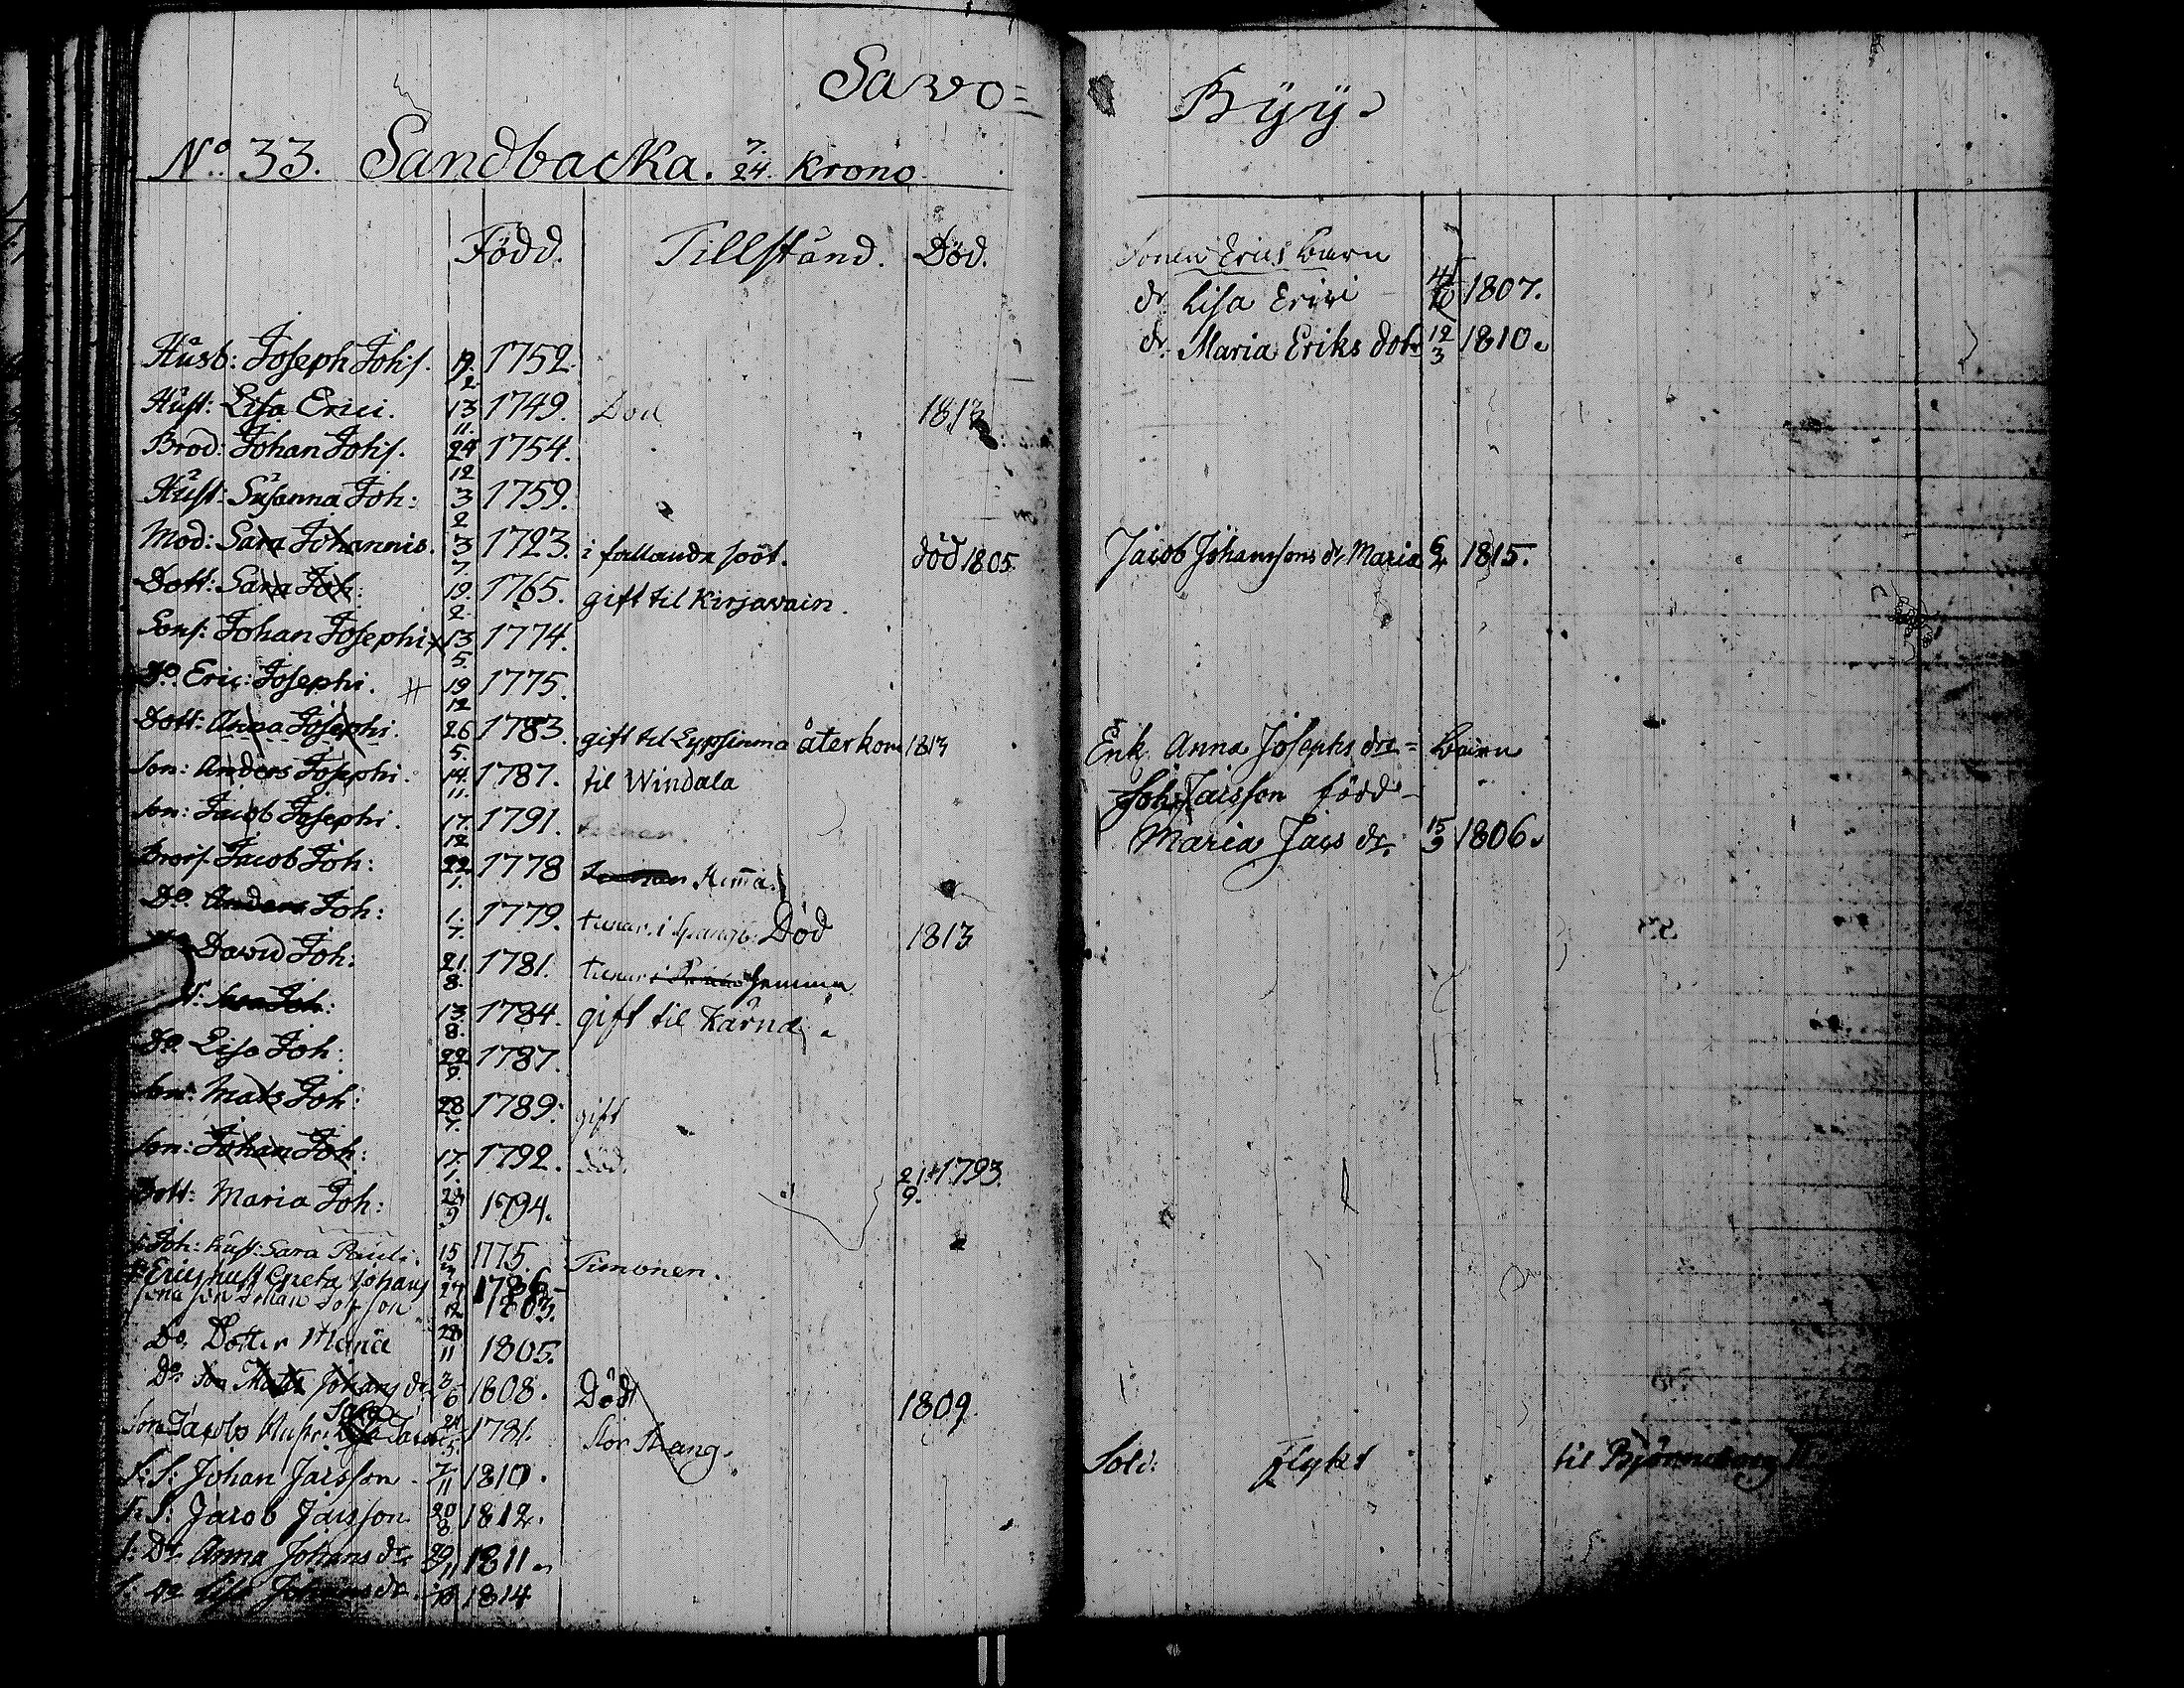 Sawo=
No. 33. Sandbacka. 7./24. Krono
Född. Tillstånd. Död.
Husb: Joseph Johis. 2. 1752.
Hust: Lisa Erici. 13/11. 1749. Död 1813
Brod: Johan Johis. 24/12 1754.
Hust: Susanna Joh: 3/2 1759.
Mod: Sara Johannis. 3/7. 1723. i fallande soot. död 1805.
Dott: Sara Joh: 19./2. 1765. gift til Kirjavain.
Sons: Johan Josephi 13/5. 1774.
Do. Eric: Josephi. # 19/12 1775.
Dott: Anna Josephi. 26/5. 1783. gift til återkom 1813
Son: Anders Josephi. 14./11. 1787. til Windala
Son: Jacob Josephi. 17./12 1791.
Jacob Joh: 22./1. 1778 Hemma
Do. Anders Joh: 1./7. 1779. tienar i Död 1813
David Joh: 21./8. 1781. tienar hemma
Joh: 13./8. 1784. gift til Kärnä.
Do. Lisa Joh: 22/9. 1787.
Son: Mats Joh: 28/7. 1789. gift
Son: Johan Joh: 17./1. 1792. död. 21./9. 1793.
Dott: Maria Joh: 9 1794.
Joh: hust: Sara Pauli. 15 1775. Timonen.
Erics hust Greta Johans 24 1786
son Johan Johsson 12 1803.
Do. Dotter Maria 28/11 1805.
Do. Johans dr 3/6 1808. Död 1809
Son Jacobs Hustru Sara 24/5. 1781. Stor Stang.
S: S: Johan Jacsson 7/11 1810.
S: S: Jacob Jacsson 20/8 1812.
S: Dr Anna Johans dr 29/11 1811.
S: Do Lisa Johans dr 1814
Byy.
Sonen Erics barn
dr Lisa Erici 1807.
dr. Maria Eriks dotr 12/3 1810.
Jacob Johanssons dr Maria 6/2 1815.
Enk. Anna Josephs dr = barn
Joh: Jacsson född
Maria Jacs dr. 15/9 1806.
Sold: Flykt til Björneborg